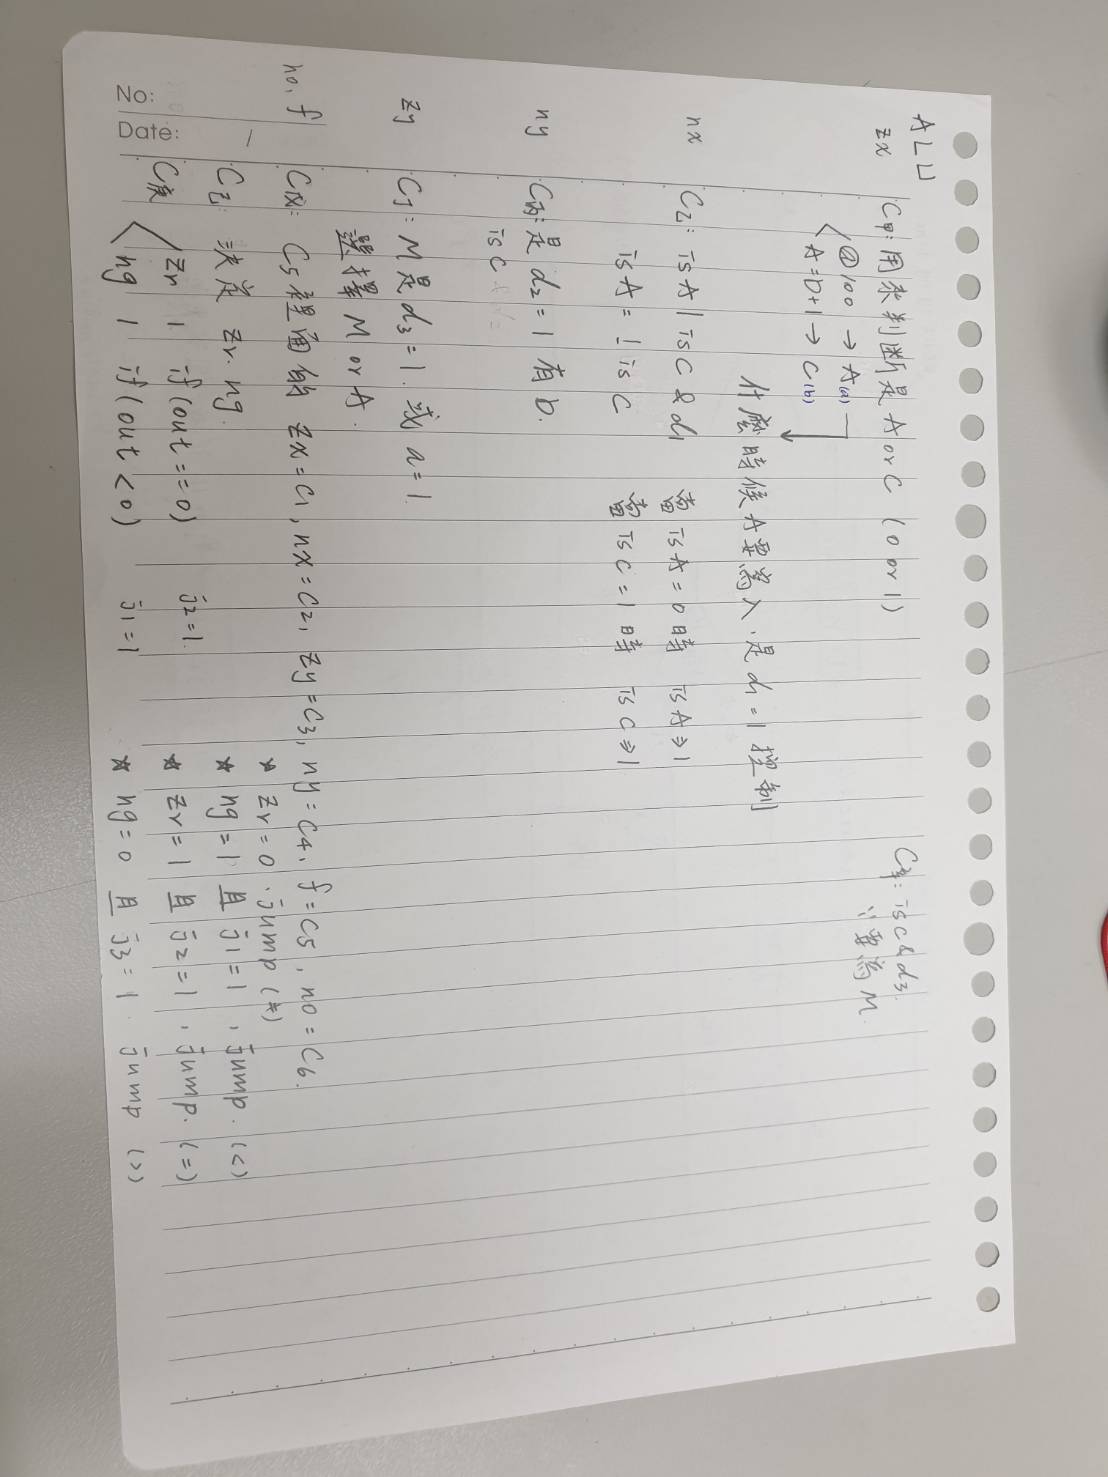 ALU
zx C甲: 用來判斷是 A or C (0 or 1)
@100 → A(a)
A=D+1 → C(b)
什麼時候A要寫入,是 d1=1 控制
C辛: is C & d3.
∵要寫M.
nx C乙: is A | is C & d1 當 is A = 0 時 is A ⇒ 1
is A = ! is C 當 is C = 1 時 is C ⇒ 1
ny C丙: 是 d2 = 1 有 D.
is C
zy C丁: M是 d3 = 1. 或 a = 1.
選擇 M or A.
no, f C戊: C5 裡面的 zx = C1, nx = C2, zy = C3, ny = C4, f = C5, no = C6.
C己: 決定 zr. ng.
C庚 zr 1 if(out == 0) j2=1.
ng 1 if(out < 0) j1=1
★ zr = 0 . jump (≠)
★ ng = 1 且 j1 = 1 , jump. (<)
★ zr = 1 且 j2 = 1 , jump. (=)
★ ng = 0 且 j3 = 1. jump (>)
No:
Date: /